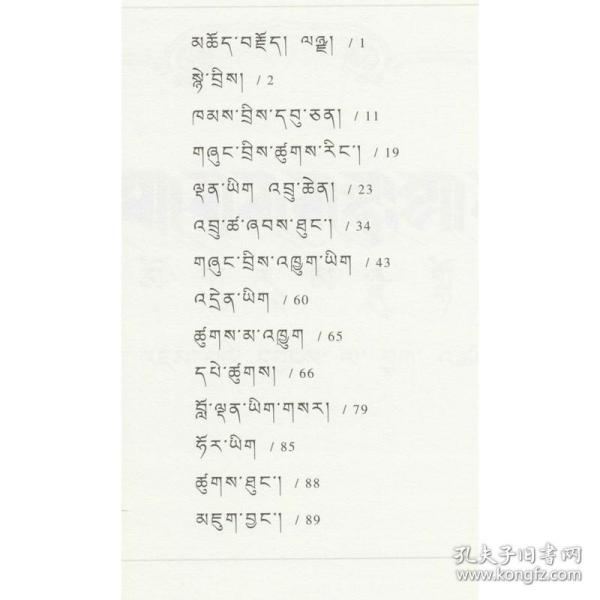 མཆོད་བརྗོད། ལཉྫ། / 1
སྙེ་བྲིས། / 2
ཁམས་བྲིས་དབུ་ཅན། / 11
གཞུང་བྲིས་ཚུགས་རིང་། / 19
ལྡན་ཡིག འབྲུ་ཆེན། / 23
འབྲུ་ཚ་ཞབས་ཐུང་། / 34
གཞུང་བྲིས་འཁྱུག་ཡིག / 43
འདྲེན་ཡིག / 60
ཚུགས་མ་འཁྱུག / 65
དཔེ་ཚུགས། / 66
བློ་ལྡན་ཡིག་གསར། / 79
ཧོར་ཡིག / 85
ཚུགས་ཐུང་། / 88
མཇུག་བྱང་། / 89
孔夫子旧书网
www.kongfz.com